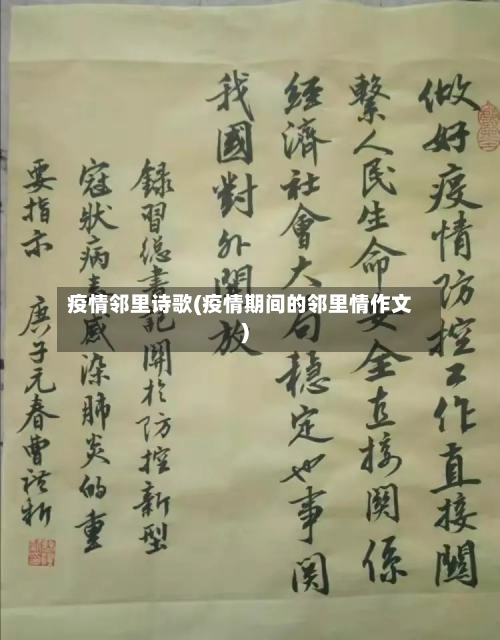 做好疫情防控工作直接關
繫人民生命安全直接関係
經濟社會大局穩定也事関
我國對外開放
錄習總書記関於防控新型
冠狀病毒感染肺炎的重
要指示 庚子元春曹
疫情邻里诗歌(疫情期间的邻里情作文
)